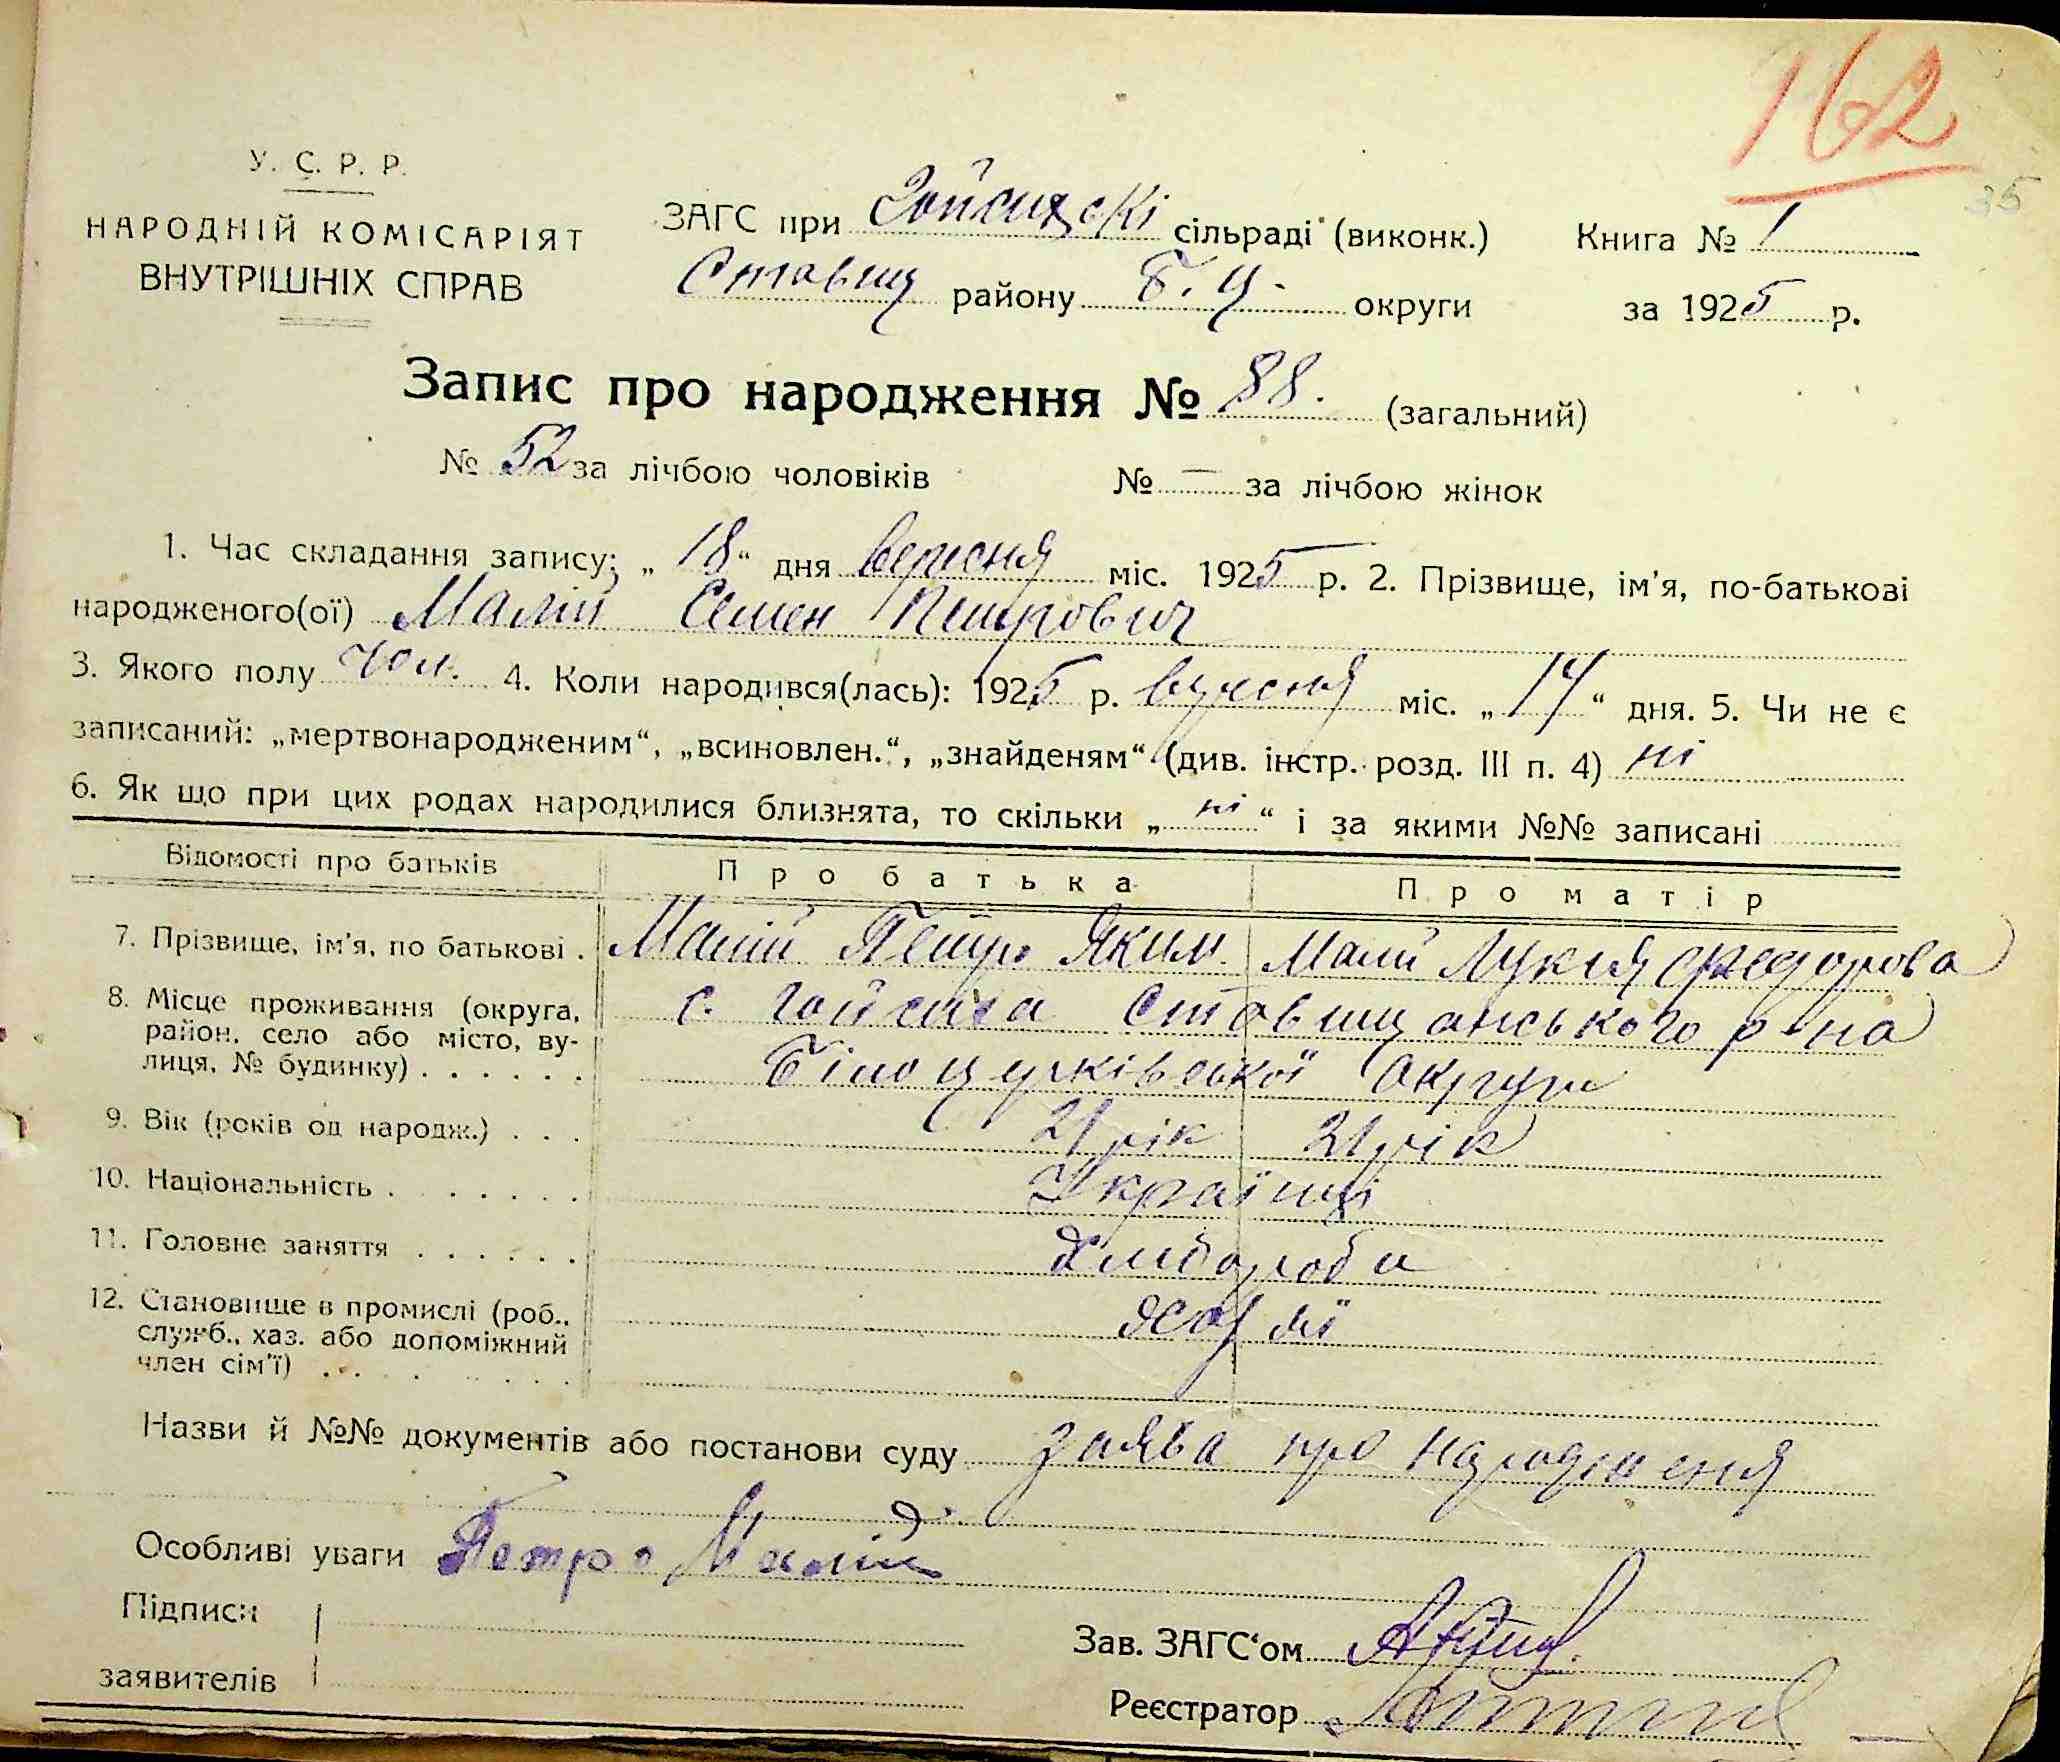 162
35
У. С. Р. Р.
НАРОДНІЙ КОМІСАРІЯТ
ВНУТРІШНІХ СПРАВ
ЗАГС при Гойсицскі сільраді (виконк.)
Ставищ району Б. Ц. округи
Книга № 1
за 1925 р.
Запис про народження № 88. (загальний)
№ 52 за лічбою чоловіків № — за лічбою жінок
1. Час складання запису: „18“ дня вересня міс. 1925 р. 2. Прізвище, ім'я, по-батькові
народженого(ої) Малій Семен Петрович
3. Якого полу чол. 4. Коли народився(лась): 1925 р. вересня міс. „14“ дня. 5. Чи не є
записаний: „мертвонародженим“, „всиновлен.“, „знайденям“ (див. інстр. розд. III п. 4) ні
6. Як що при цих родах народилися близнята, то скільки „ні“ і за якими №№ записані
Відомості про батьків Про батька Про матір
7. Прізвище, ім'я, по батькові . Малій Петро Яким. Малій Лукія Федорова
8. Місце проживання (округа, район, село або місто, вулиця, № будинку) . . . . . . с. Гойсиха Ставищанського р-на
Білоцерківської округи
9. Вік (років од народж.) . . . 21 рік 21 рік
10. Національність . . . . . . . Українці
11. Головне заняття . . . . . . Хлібороби
12. Становище в промислі (роб., служб., хаз. або допоміжний член сім'ї) . . .
Назви й №№ документів або постанови суду заява про народження
Особливі уваги Петро Малій
Підписи
заявителів
Зав. ЗАГС‘ом
Реєстратор